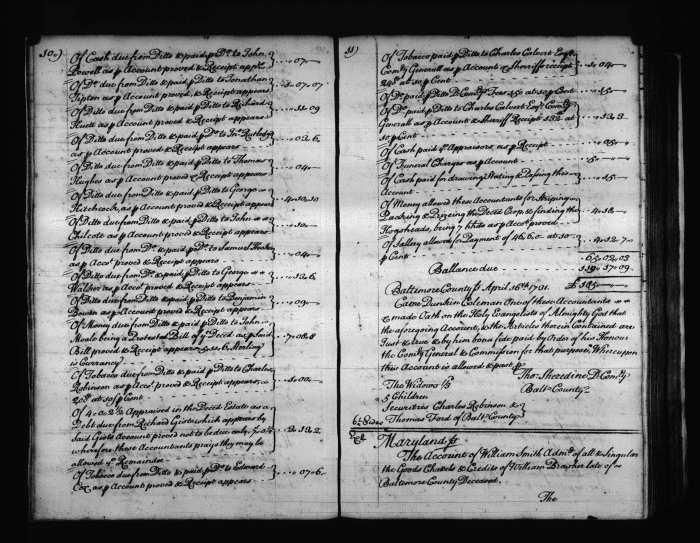 10)
Of Cash due from Ditto & paid p Do. to John
Powell as p Account proved & Receipt apprs. } 07
Of Do. due from Ditto & paid p Ditto to Jonathan
Tipton as p Account proved, & Receipt appears } 07.07
Of Ditto due from Ditto & paid p Ditto to Richard
as p Account proved & Receipt appears } 11.09
Of Ditto due from Ditto & paid p Do. to
as p Account proved & Receipt appears } 02.6
Of Ditto due from Ditto & paid p Ditto to Thomas
Hughes as p Account proved & Receipt appears } 04
Of Ditto due from Ditto & paid p Ditto to George
Hitchcock, as p Account proved & Receipt appears } 4.12.10
Of Ditto due from Ditto & paid p Ditto to John
Chilcote as p Account proved & Receipt appears } 10
Of Ditto due from Do. & paid p Do. to Samuel
as p Acco. proved & Receipt appears } 04
Of Ditto due from Do. & paid p Ditto to George
Walker as p Acco. proved & Receipt appears } 12.6
Of Ditto due from Ditto & paid p Ditto to Benjamin
Bowen as p Account proved & Receipt appears } 09
Of Money due from Ditto & paid p Ditto to John
Moale being a Protested Bill of ye. Deced as p said
Bill proved & Receipt appears Sterling } 7.08.8
is Currancy
Of Tobacco due from Ditto & paid p Ditto to Charles
Robinson as p Acco. proved & Receipt appears } 1.00
at 10s p Cent
Of 4.0.2½ Appraised in the Deced Estate as a
Debt due from Richard Gist which appears by
Said Gists Account proved not to be due only } 2.13.2
wherefore these Accountants prays they may be
allowed ye. Remainder
Of Tobacco due from Ditto & paid p Ditto to Edward
Cox, as p Account proved & Receipt appears } 07.6
11)
Of Tobacco paid p Ditto to Charles Calvert Esqr.
Comy. Generall as p Account & Sherriffs receipt } 1.04
at 10 p Cent
Of Do. paid p Ditto D Comy. Fees 150 at 10 p Cent } 15
Of Do. paid p Ditto to Charles Calvert Esqr. Comy.
Generall as p Account & Sheriff Receipt 132 at } 13.3
10 p Cent
Of Cash paid ye. Appraisors, as p Receipt } 05
Of Funeral Charges as p Account } 5
Of Cash paid for drawing Stating & Passing this
Account } 15
Of Money allowed these Accountants for Striping
Packing & Prizeing the Deced Crop & finding the } 4.18
Hogsheads, being 7 hhds as p Acco. proved
Of Sallery allowed for Payment of 46.6.0 at 10
p Cent } 4.12.7
65.02.03
Ballance due 119.17.09
Baltimore County ss April 16th. 1731. £ 185
Came Dunkin Coleman One of these Accountants
& made Oath on the Holy Evangelists of Almighty God that
the aforegoing Account, & the Articles therein Contained are
Just & true & by him bona fide paid by Order of his Honour
the Comy. General & Commission for that purpose, Whereupon
this Account is allowed & past p
Tho: Sheredine D Comy.
Balt. County
The Widows ⅓
5 Children
Securitys Charles Robinson &
Thomas Ford of Balt. County }
6½ Sides
Exd.
Maryland ss
The Account of William Smith Admr. of all & Singular
the Goods Chattels & Credits of William Brasher late of
Baltimore County Deceased.
The